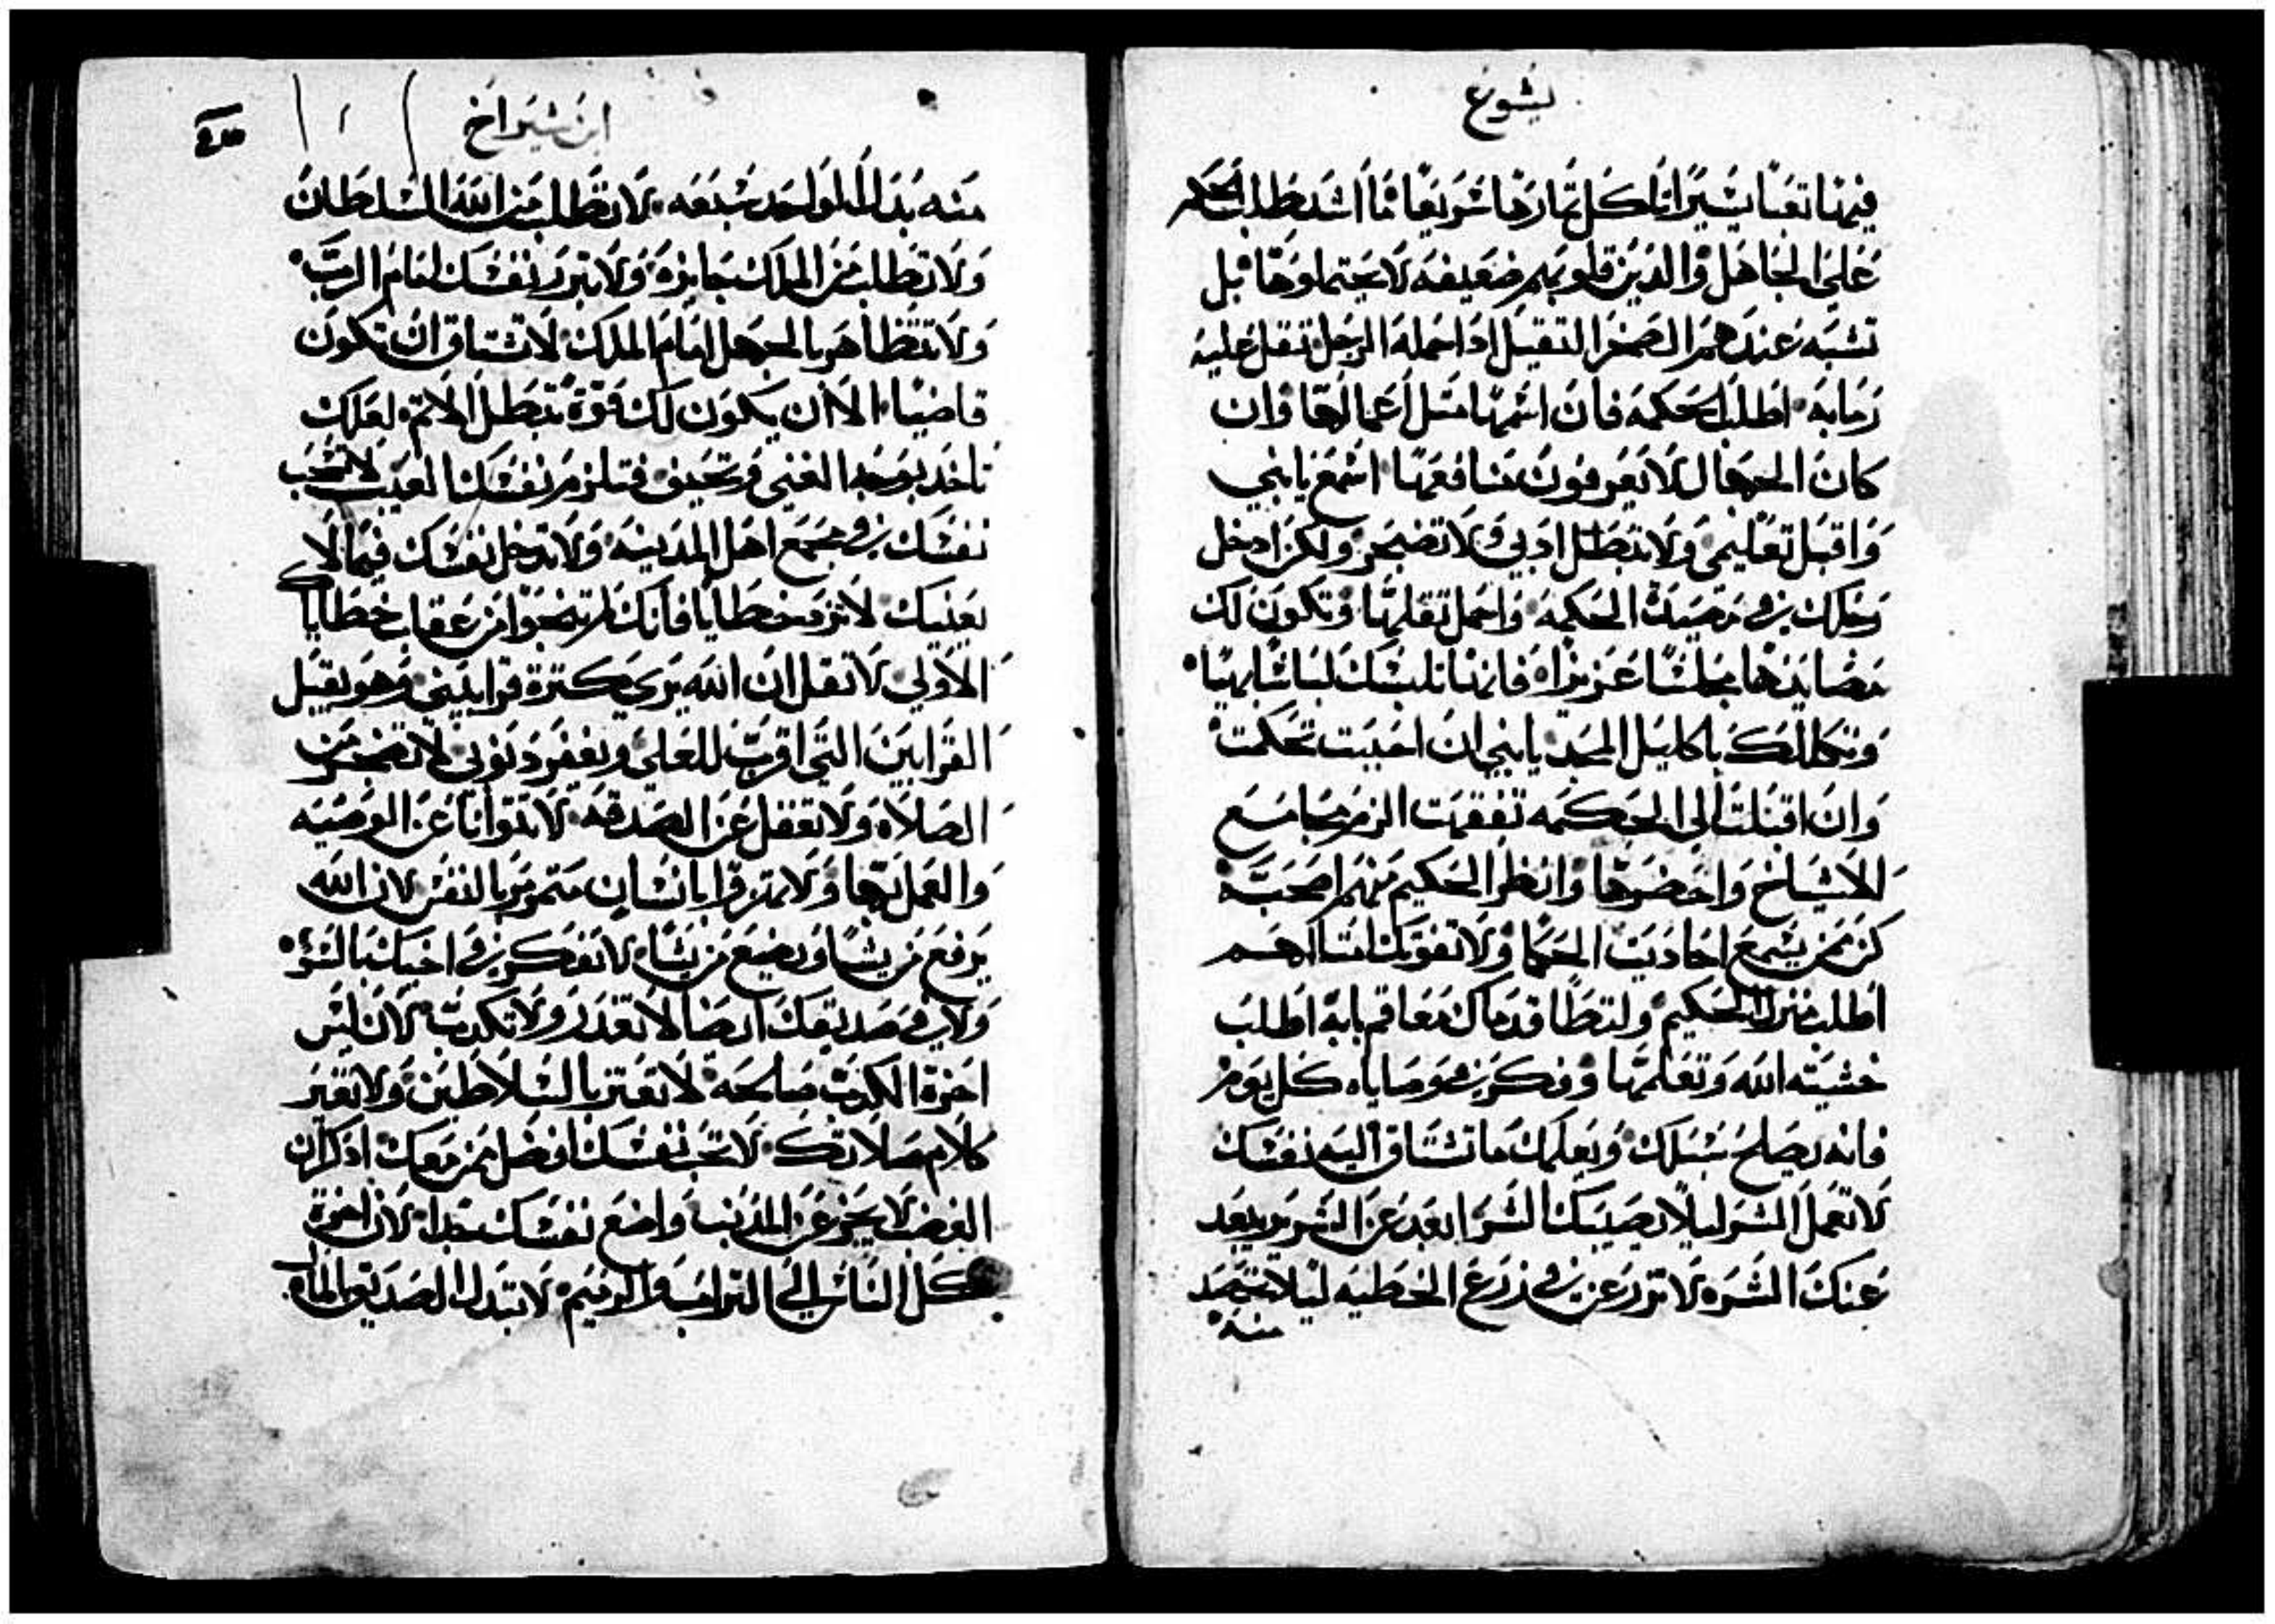 يشوع
فيها تعبًا يسيرًا تاكل ثمارها سريعًا ما اشد طلب الحكمه
على الجاهل والدين قلوبهم ضعيفه لا يحتملوها بل
تشبه عندهم الصخر التقيل ادا حمله الرجل تقل عليه
رما به اطلب الحكمه فان اسمها متل اعمالها وان
كان الجهال لا يعرفون منافعها اسمع يابني
واقبل تعليمي ولا تبطل ادبي ولا تضجر ولكن ادخل
رجلك في مصيدة الحكمه واحمل تقلها وتكون لك
مصايدها مجلسًا عزيزاه فانها تلبسك لباسًا بهيًا
وتكللك باكاليل المجد يابني ان احببت تحكمت
وان اقبلت الى الحكمه تفقهت الزم مجامع
الاشياخ واحضرها وانظر الحكيم منهم اصحبه
كن ممن يسمع احاديت الحكما ولا تفوتك امتالهم
اطلب منزل الحكيم ولتطا قدماك معاقم بابه اطلب
خشيته الله وتعلمها وفكر في وصاياه كل يوم
فانه يصلح سبلك ويعلمك ما تشتاق اليه نفسك
لا تعمل الشر ليلا يصيبك الشر ابعد عن الشرير يبعد
عنك الشره لا تزرعن في زرع الخطيه ليلا تحصد
منه
ابن شيراخ
منه بدل الواحد سبعه لا تطلب من الله السلطان
ولا تطلب من الملك جايزه ولا تبرر نفسك امام الرب
ولا تتظاهر بالجهل امام الملك لا تشتاق ان تكون
قاضيًا الا ان يكون لك قوة تبطل الاتم لعلك
تاخد بوجه الغني وتحيف فتلزم نفسك العيب لا تحب
نفسك في مجمع اهل المدينه ولا تدخل نفسك فيما لا
يعنيك لا تزد خطايا فانك لا تنجوا من عقاب خطاياك
الاولي لا تقل ان الله يرى كترة قرابيني وهو يقبل
القرابين التي اقرب للعلي ويغفر دنوبي لا تضجر من
الصلاه ولا تغفل عن الصدقه لا تتوانا عن الوصيه
والعمل بها ولا تهزوا بانسان متمرمر بالنفس لان الله
يرفع من يشا ويضع من يشاء لا تفكر في اخيك بالسوء
ولا في صديقك ايضا لا تغدر ولا تكدب لان ليس
اخرة الكدب صالحه لا تغتر بالسلاطين ولا تغير
كلام صلاتك لا تحب نفسك افضل من معك ادكر ان
الغضب لا يجوز عن المدنب واضع نفسك جدا لان اخرة
كل الناس الى التراب والرميم لا تبدل الصديق بالمال